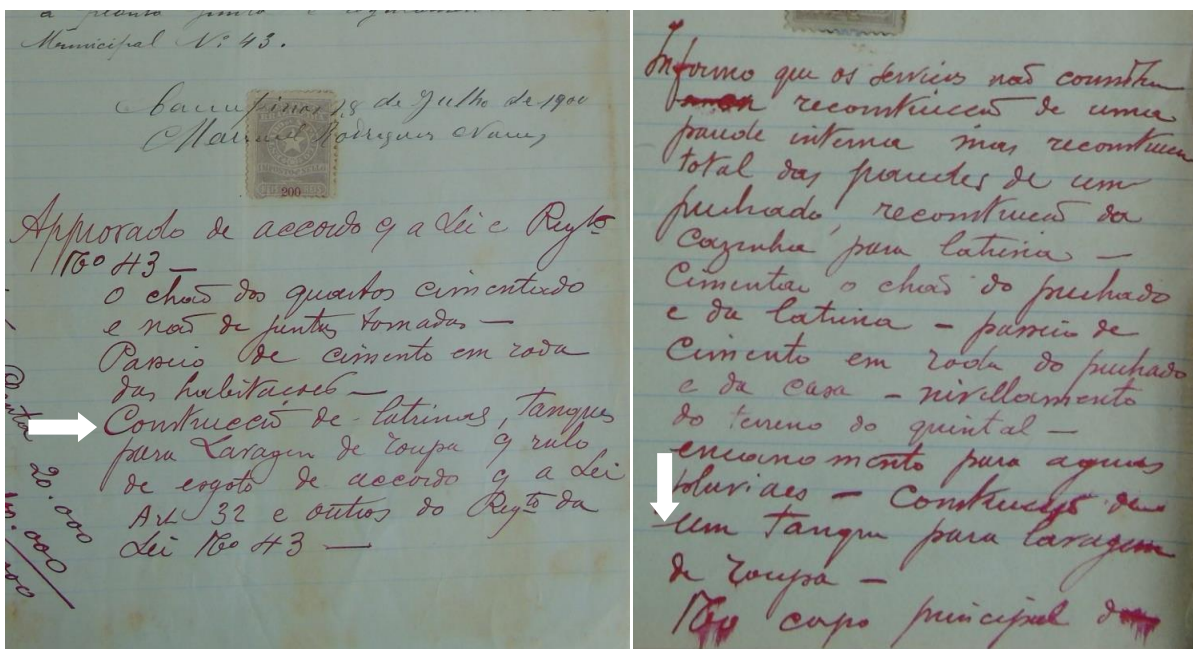 Municipal Nº 43.
Campinas 18 de Julho de 1900
Manuel Rodrigues Nunes
200
Approvado de accordo c/ a Lei e Regto
No 43 —
O chão dos quartos cimentado
e não de juntas tomadas —
Passeio de cimento em roda
das habitações —
Construcção de latrinas, tanques
para Lavagem de roupa c/ ralo
de esgoto de accordo c/ a Lei
Art 32 e outros do Regto da
Lei No 43 —
20.000
Informo que os serviços não constitu
reconstrucção de uma
parede interna mas reconstrucção
total das paredes de um
puchado, reconstrucção da
cozinha, para latrina —
Cimentar o chão do puchado
e da latrina — passeio de
cimento em roda do puchado
e da casa — nivellamento
do terreno do quintal —
encanamento para aguas
pluviaes — Construcção de
um Tanque para lavagem
de roupa —
No corpo principal